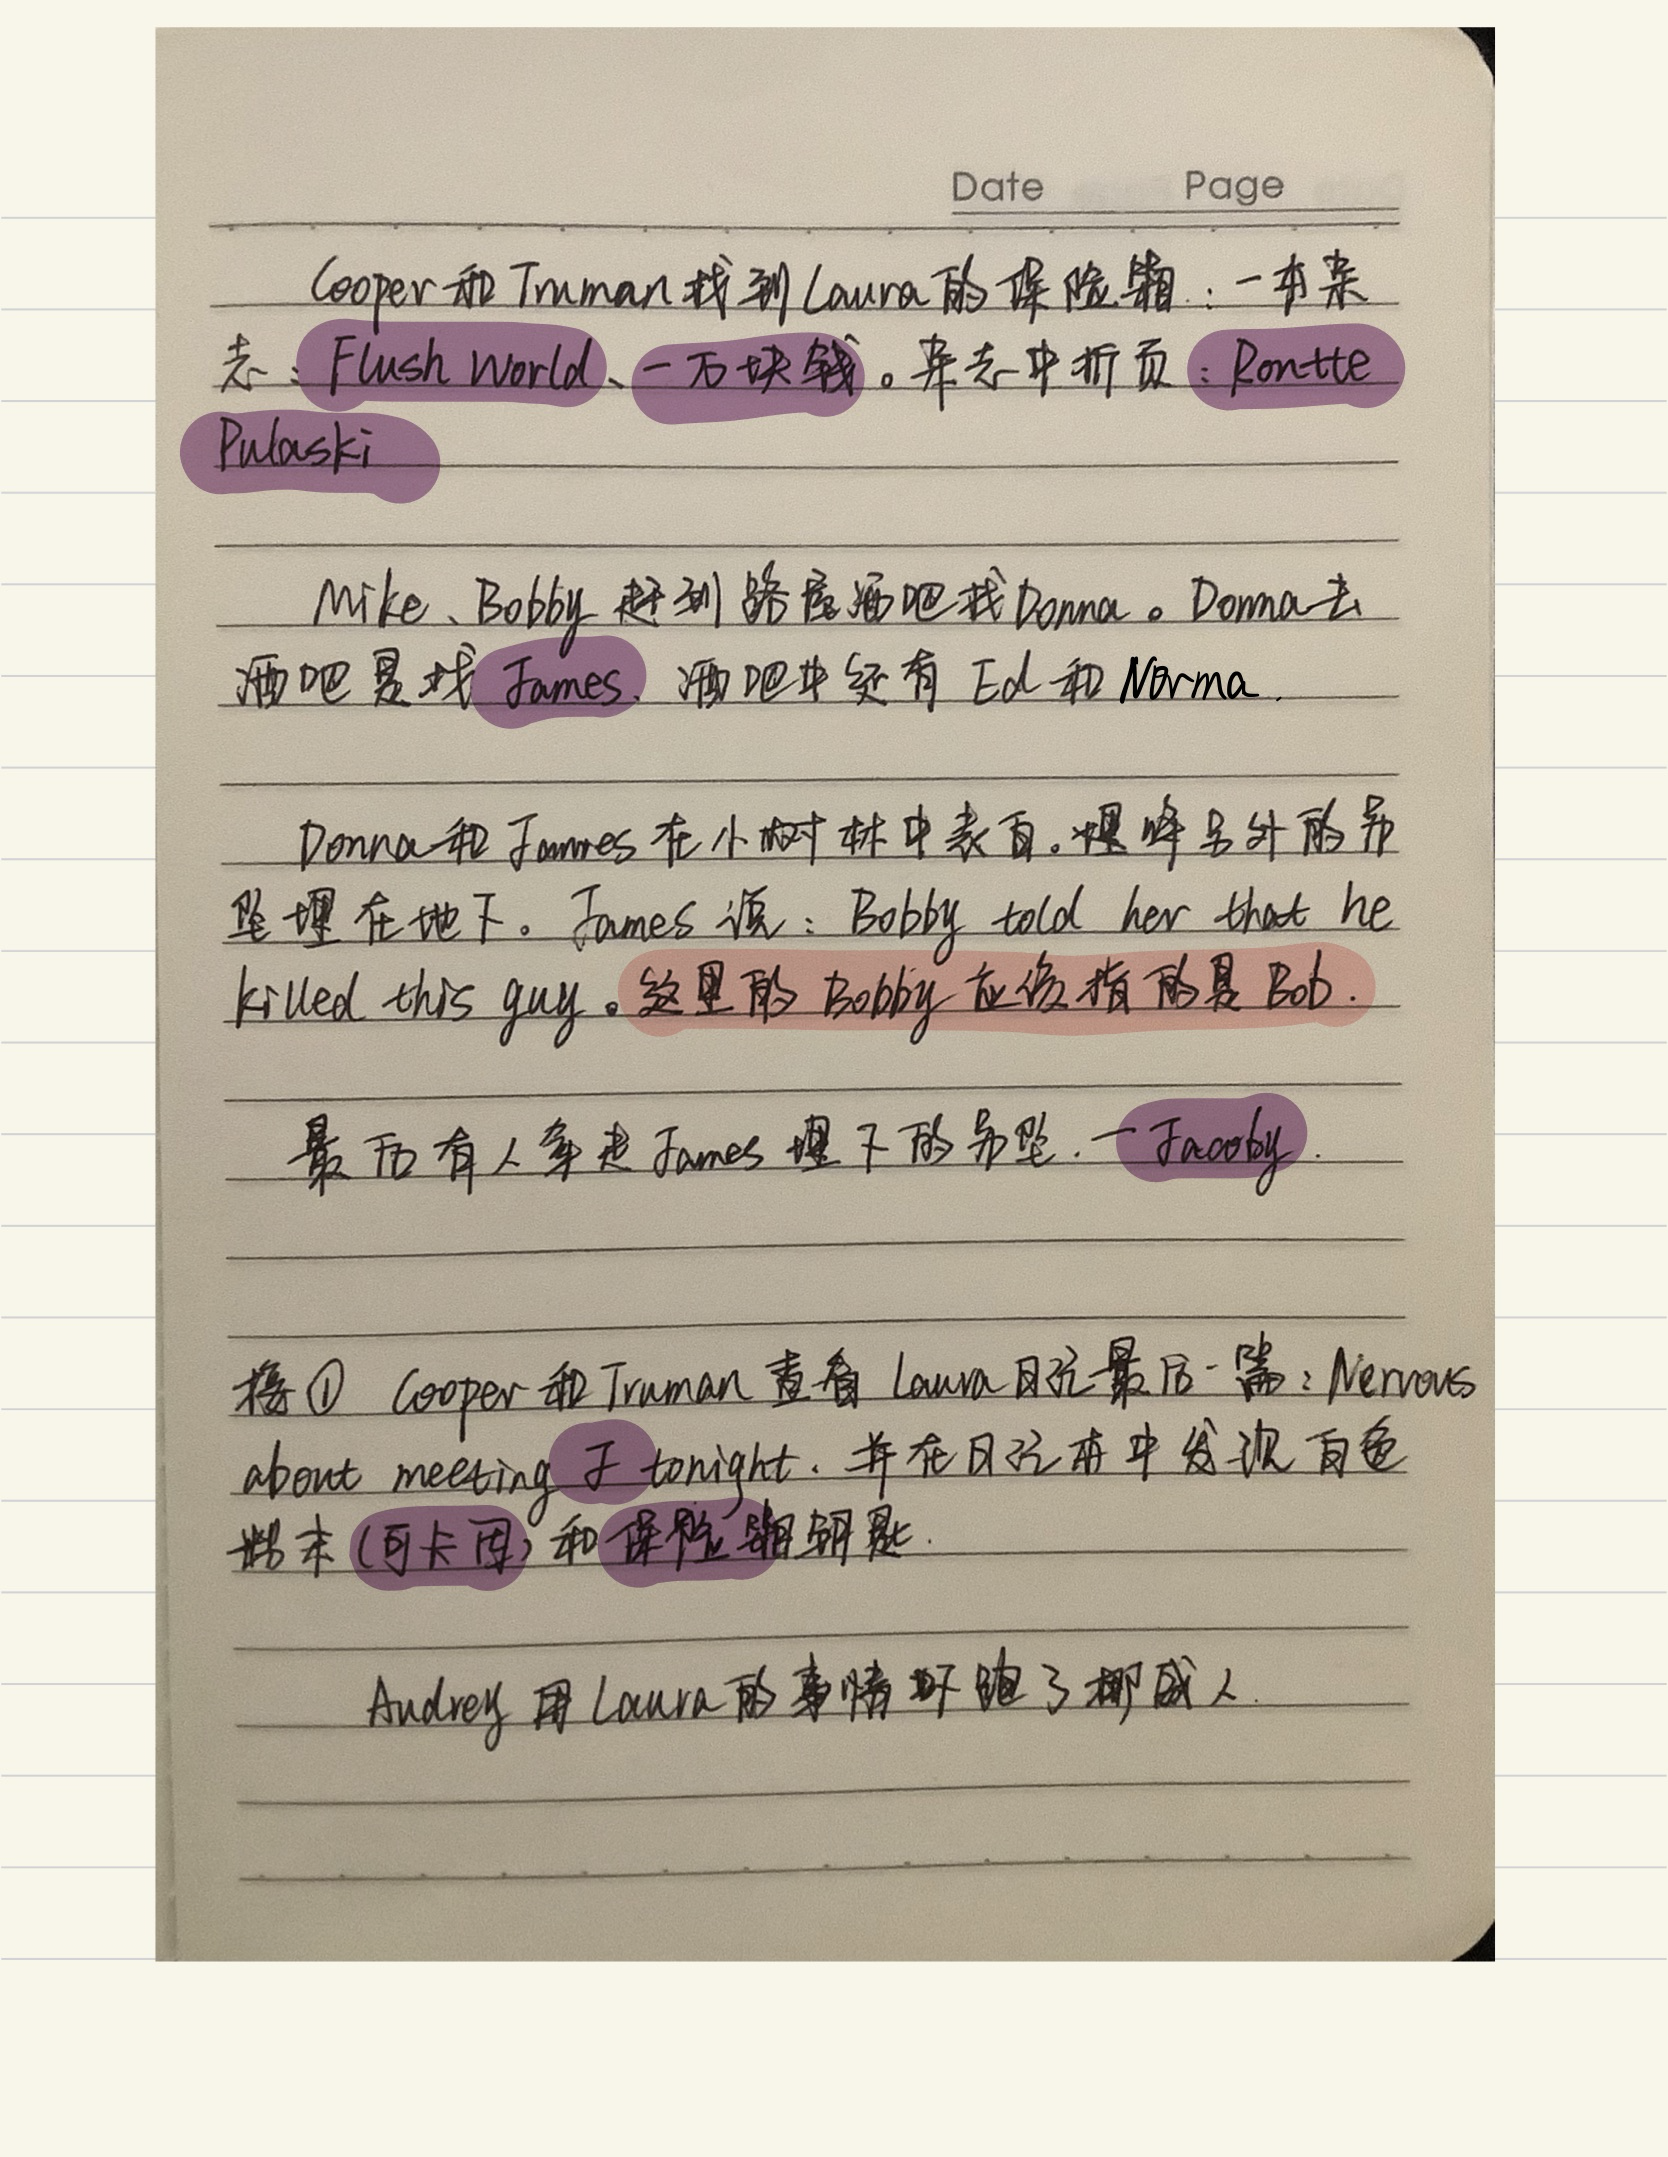 Date Page
Cooper和Truman找到Laura的保险箱：一本杂
志：Flush World、一万块钱。杂志中折页：Rontte
Pulaski
Mike、Bobby赶到路度酒吧找Donna。Donna去
酒吧是找James. 酒吧中还有Ed和Norma.
Donna和James在小树林中表白.埋将另外的吊
坠埋在地下。James说：Bobby told her that he
killed this guy。这里的Bobby应该指的是Bob.
最后有人拿走James埋下的吊坠.—Jacoby.
接① Cooper和Truman查看Laura日记最后一篇：Nervous
about meeting J tonight. 并在日记本中发现白色
粉末(可卡因)和保险箱钥匙.
Audrey用Laura的事情吓跑了挪威人.